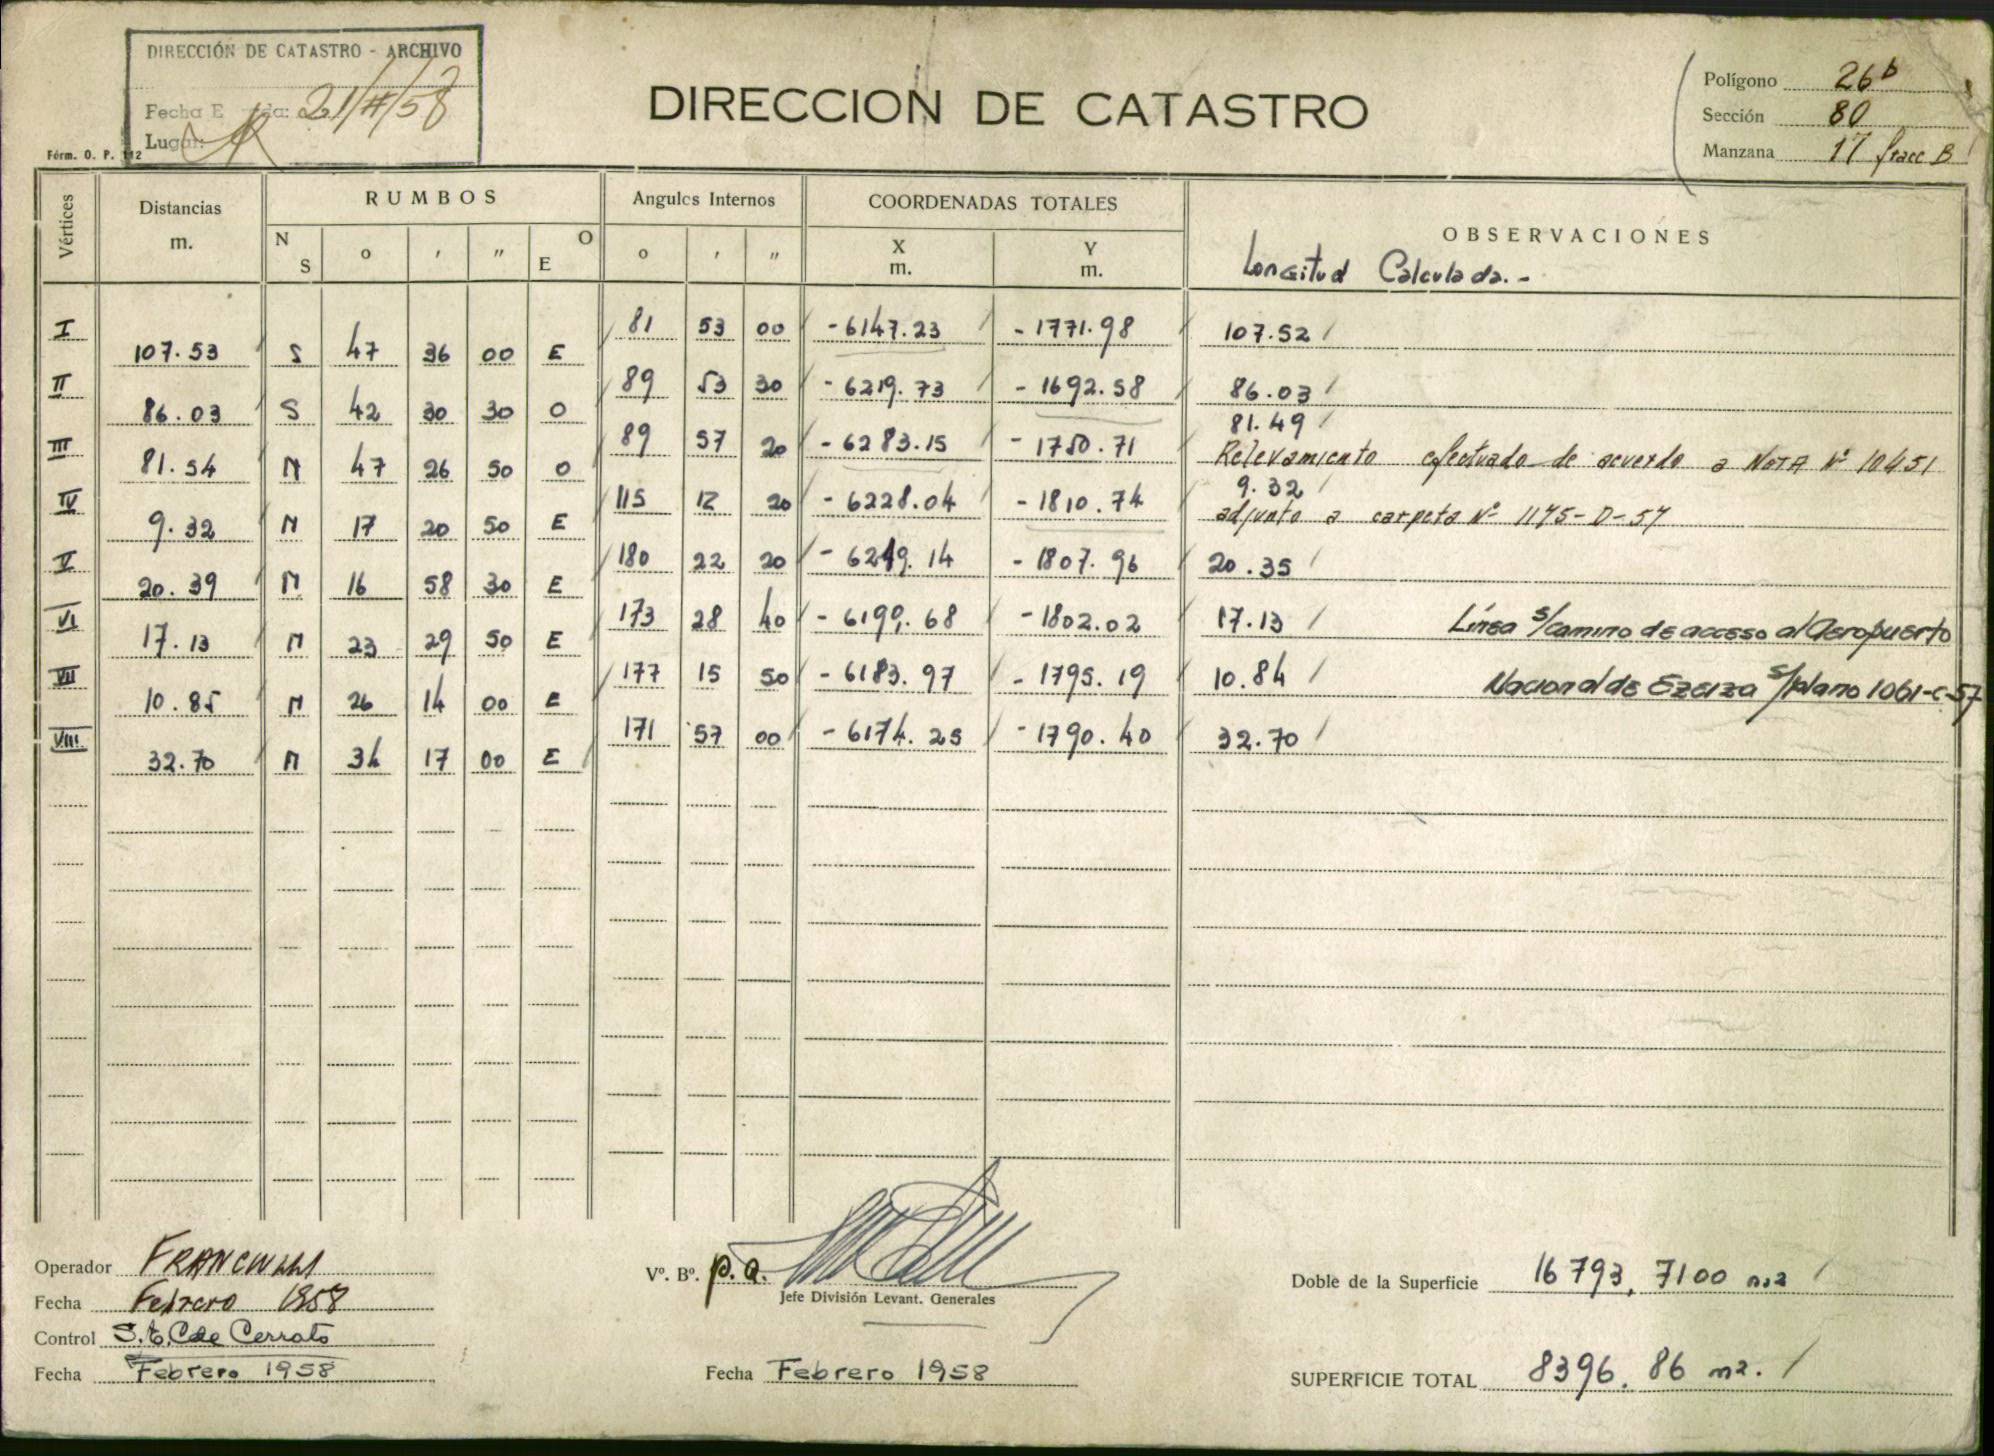 DIRECCIÓN DE CATASTRO - ARCHIVO
Fecha E da: 21/4/58
Lugar:
Férm. O. P. 112
DIRECCION DE CATASTRO
Polígono 26 b
Sección 80
Manzana 17 fracc B
Vértices Distancias m. RUMBOS Angulos Internos COORDENADAS TOTALES OBSERVACIONES
N S o ' " O E o ' " X m. Y m. Longitud Calculada.-
I 81 53 00 -6147.23 -1771.98 107.52
107.53 S 47 36 00 E
II 89 53 30 -6219.73 -1692.58 86.03
86.03 S 42 30 30 O
81.49
III 89 57 20 -6283.15 -1750.71 Relevamiento efectuado de acuerdo a NOTA Nº 10451
81.54 N 47 26 50 O
9.32
IV 115 12 20 -6228.04 -1810.74 adjunto a carpeta Nº 1175-D-57
9.32 N 17 20 50 E
V 180 22 20 -6219.14 -1807.96 20.35
20.39 N 16 58 30 E
VI 173 28 40 -6199.68 -1802.02 17.13 Línea s/camino de acceso al Aeropuerto
17.13 N 23 29 50 E
VII 177 15 50 -6183.97 -1795.19 10.84 Nacional de Ezeiza s/plano 1061-C-57
10.85 N 26 14 00 E
VIII 171 57 00 -6174.25 -1790.40 32.70
32.70 N 34 17 00 E
Operador
Fecha Febrero 1958
Control S.E.C de Cerrato
Fecha Febrero 1958
Vº. Bº. p.a.
Jefe División Levant. Generales
Fecha Febrero 1958
Doble de la Superficie 16793,7100 m2
SUPERFICIE TOTAL 8396.86 m2.